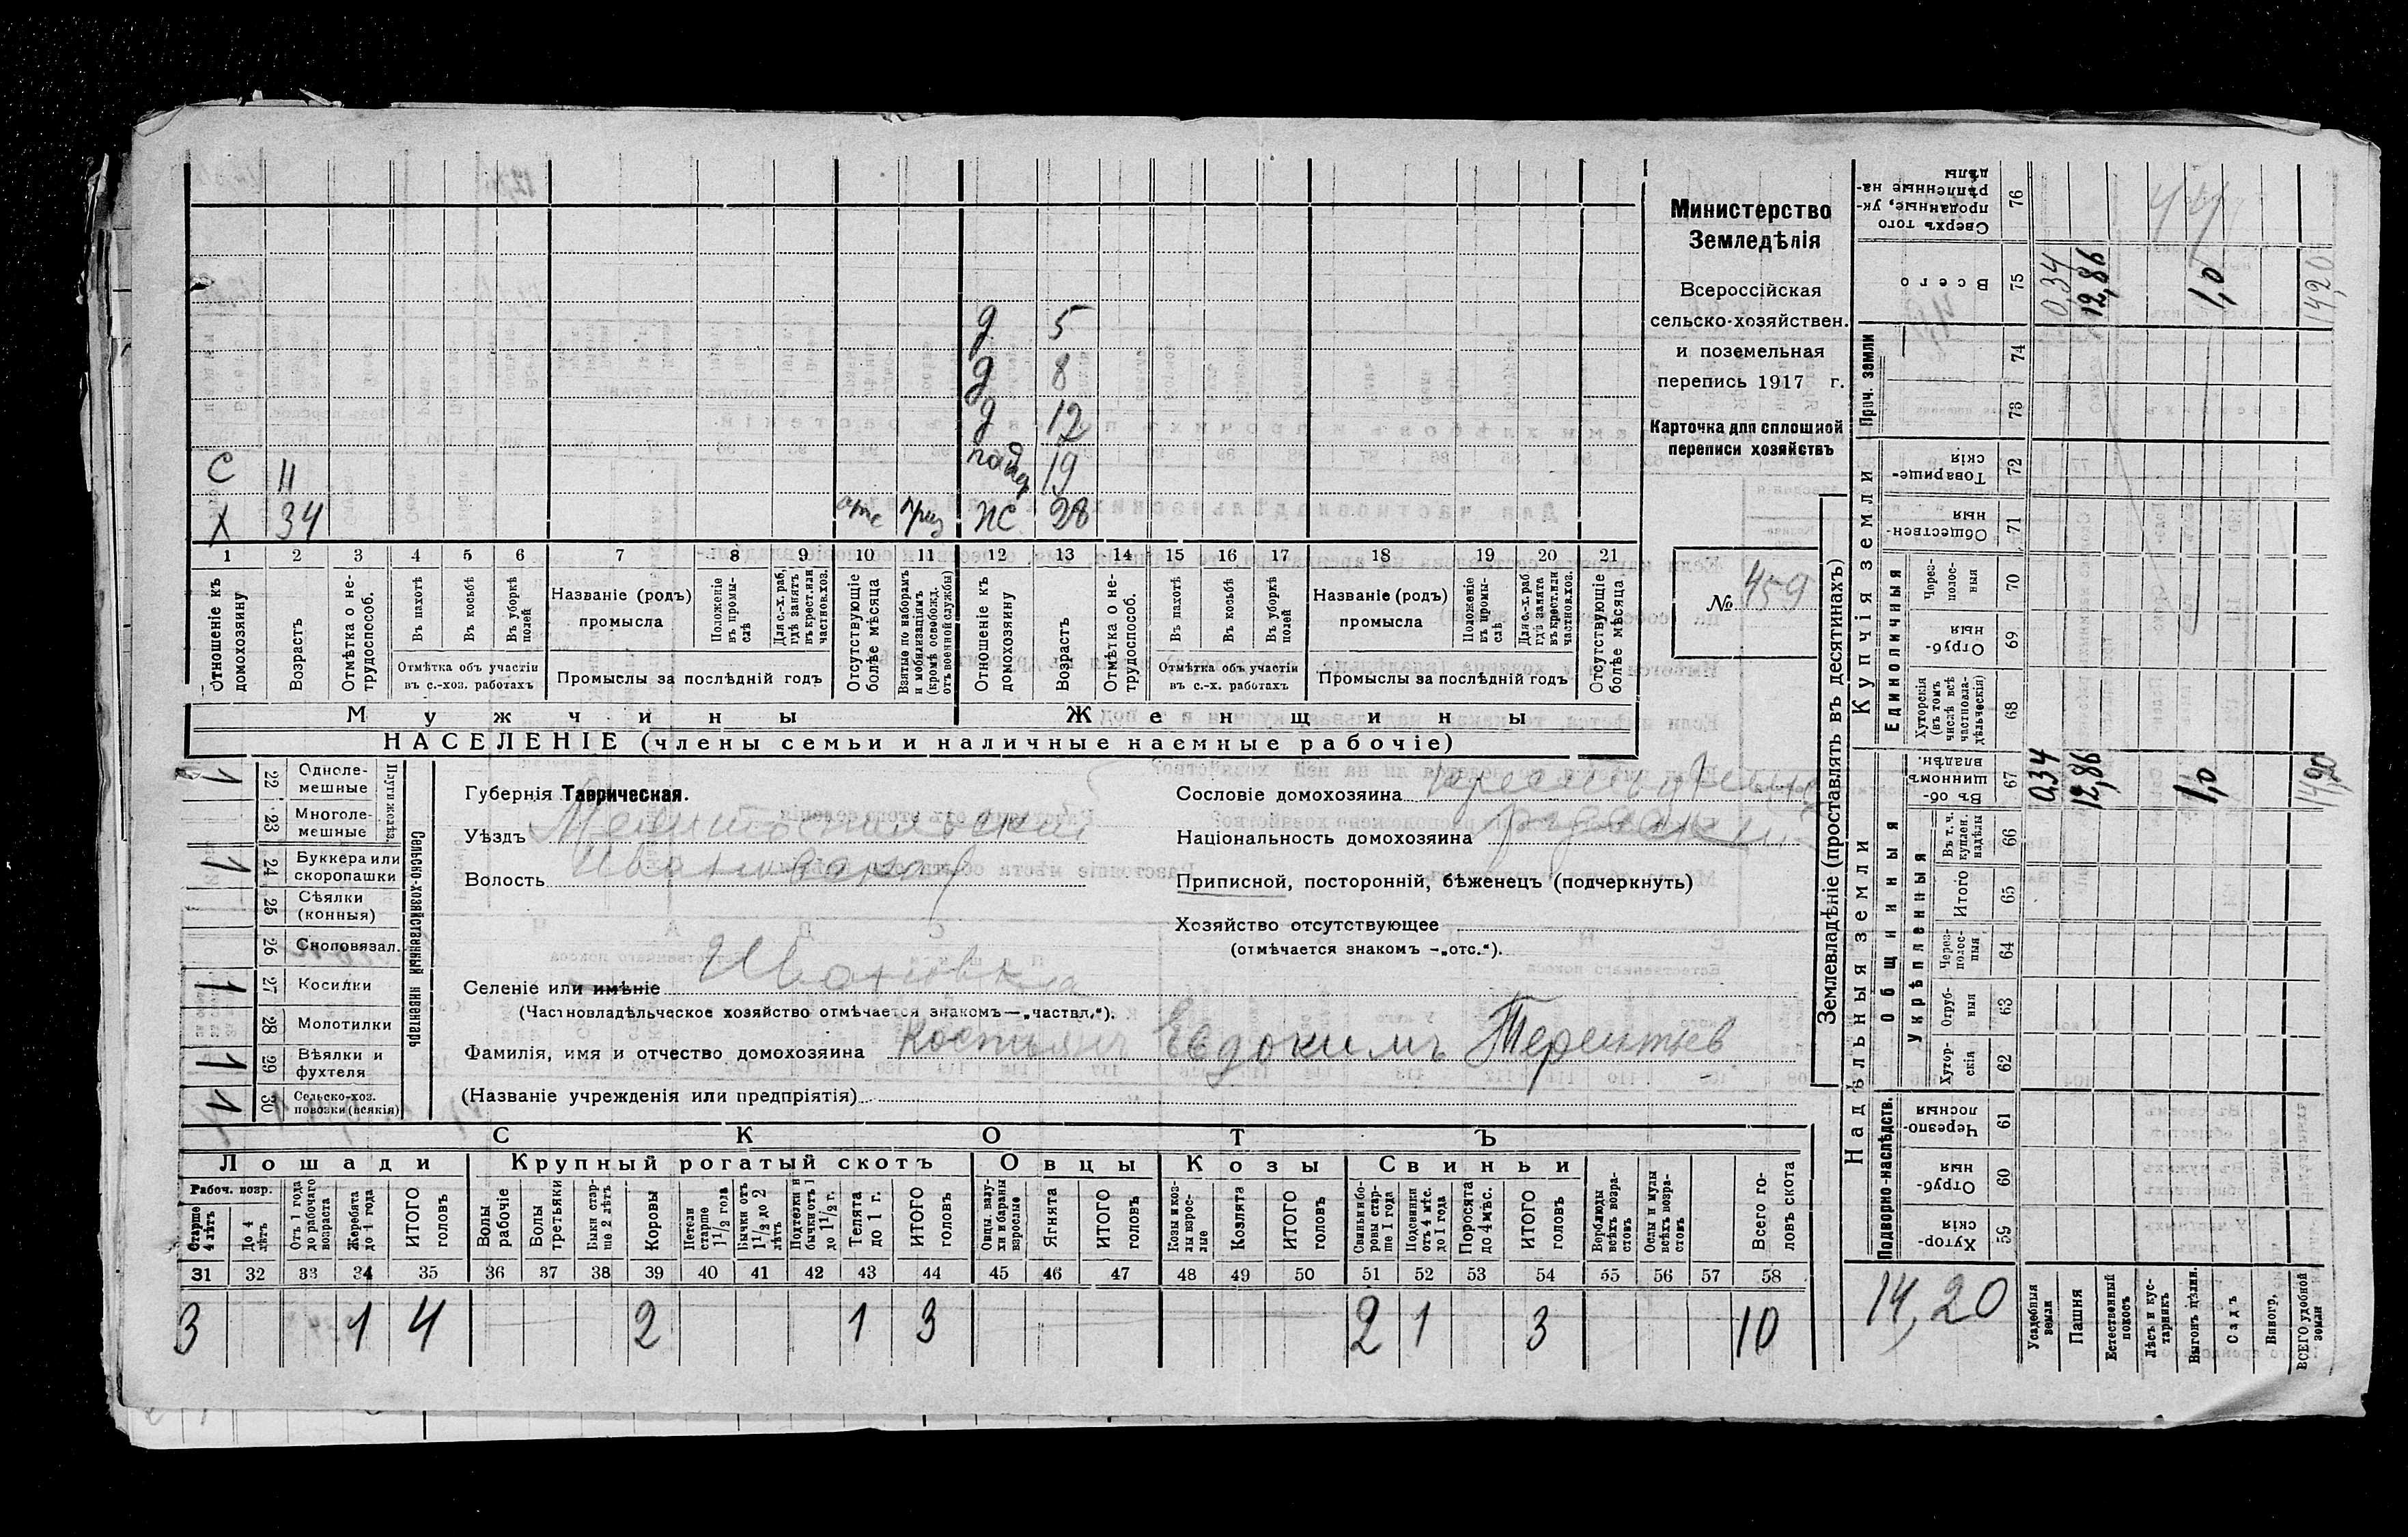 Министерство
Земледѣлія
Всероссійская
сельско-хозяйствен.
и поземельная
перепись 1917 г.
Карточка для сплошной
переписи хозяйствъ
№ 459
д 5
д 8
д 12
19
С 11
Х 34 28
1 2 3 4 5 6 7 8 9 10 11 12 13 14 15 16 17 18 19 20 21
Отношеніе къ домохозяину
Возрастъ
Отмѣтка о не-трудоспособ.
Въ пахотѣ
Въ косьбѣ
Въ уборкѣ полей
Отмѣтка объ участіи въ с.-хоз. работахъ
Названіе (родъ) промысла
Положеніе въ промы-слѣ
Для с.-х. раб, гдѣ занятъ въ крест. или частнов. хоз.
Промыслы за послѣдній годъ
Отсутствующіе болѣе мѣсяца
Взятые по наборамъ и мобилизаціямъ (кромѣ освобожд. отъ военной службы)
Отношеніе къ домохозяину
Возрастъ
Отмѣтка о не-трудоспособ.
Въ пахотѣ
Въ косьбѣ
Въ уборкѣ полей
Отмѣтка объ участіи въ с.-х. работахъ
Названіе (родъ) промысла
Положеніе въ промы-слѣ
Для с.-х. раб гдѣ занята въ крест. или частнов. хоз.
Промыслы за послѣдній годъ
Отсутствующіе болѣе мѣсяца
Мужчины Женщины
НАСЕЛЕНІЕ (члены семьи и наличные наемные рабочіе)
Сельско-хозяйственный инвентарь
1 22 Однолемешные
23 Многолемешные
1 24 Буккера или скоропашки
25 Сѣялки (конныя)
26 Сноповязал.
1 27 Косилки
28 Молотилки
1 29 Вѣялки и фухтеля
1 30 Сельско-хоз. повозки (всякія)
Губернія Таврическая.
Уѣздъ Мелитопольскій
Волость Ивановская
Сословіе домохозяина
Національность домохозяина
Приписной, посторонній, бѣженецъ (подчеркнуть)
Хозяйство отсутствующее
(отмѣчается знакомъ -„отс.“).
Селеніе или имѣніе Ивановка
(Частновладѣльческое хозяйство отмѣчается знакомъ—„частвл.“).
Фамилія, имя и отчество домохозяина Евдокимъ Терентьев
(Названіе учрежденія или предпріятія)
СКОТЪ
Лошади Крупный рогатый скотъ Овцы Козы Свиньи
Рабоч. возр.
Старше 4 лѣтъ
До 4 лѣтъ
Отъ 1 года до рабочаго возраста
Жеребята до 1 года
ИТОГО головъ
Волы рабочіе
Волы третьяки
Быки стар-ше 2 лѣтъ
Коровы
Нетели старше 1½ года
Бычки отъ 1½ до 2 лѣтъ
Подтелки и бычки отъ 1 до 1½ г.
Телята до 1 г.
ИТОГО головъ
Овцы, валу-хи и бараны взрослые
Ягнята
ИТОГО головъ
Козы и коз-лы взрос-лые
Козлята
ИТОГО головъ
Свиньи и бо-ровы стар-ше 1 года
Подсвинки отъ 4 мѣс. до 1 года
Поросята до 4 мѣс.
ИТОГО головъ
Верблюды всѣхъ возра-стовъ
Ослы и мулы всѣхъ возра-стовъ
Всего го-ловъ скота
31 32 33 34 35 36 37 38 39 40 41 42 43 44 45 46 47 48 49 50 51 52 53 54 55 56 57 58
3 1 4 2 1 3 2 1 3 10
Землевладѣніе (проставлять въ десятинахъ)
Надѣльныя земли Купчія земли Проч. земли
Подворно-наслѣдств.
Общинныя
Укрѣпленныя
Единоличныя
59 Хутор-скія
60 Отруб-ныя
61 Черезпо-лосныя
62 Хутор-скія
63 Отруб-ныя
64 Черезполос-ныя
65 Итого
66 Въ т. ч. куплен. надѣлы
67 Въ об-щинномъ владѣн.
68 Хуторскія (въ томъ числѣ всѣ частновла-дѣльческія)
69 Отруб-ныя
70 Черезполос-ныя
71 Обществен-ныя
72 Товарище-скія
73
74
75 Всего
76 Сверхъ того проданные, ук-рѣпленные на-дѣлы
14,20
Усадебныя земли 0,34 0,34
Пашня 12,86 12,86
Естественный покосъ
Лѣсъ и кус-тарникъ
Выгонъ цѣлин. 1,0 1,0
Садъ
Виногр.
ВСЕГО удобной земли 14,20 14,20